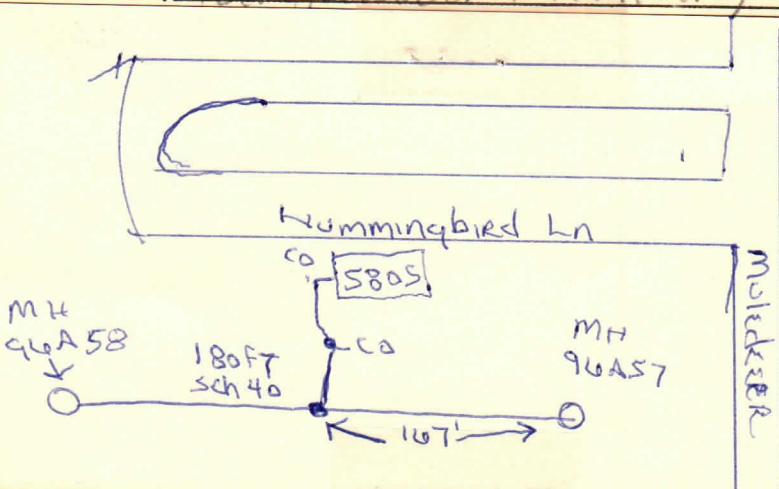 Hummingbird Ln
CO
5805
CO
MH
96A58
180FT
Sch 40
MH
96A57
167'
Muledeer